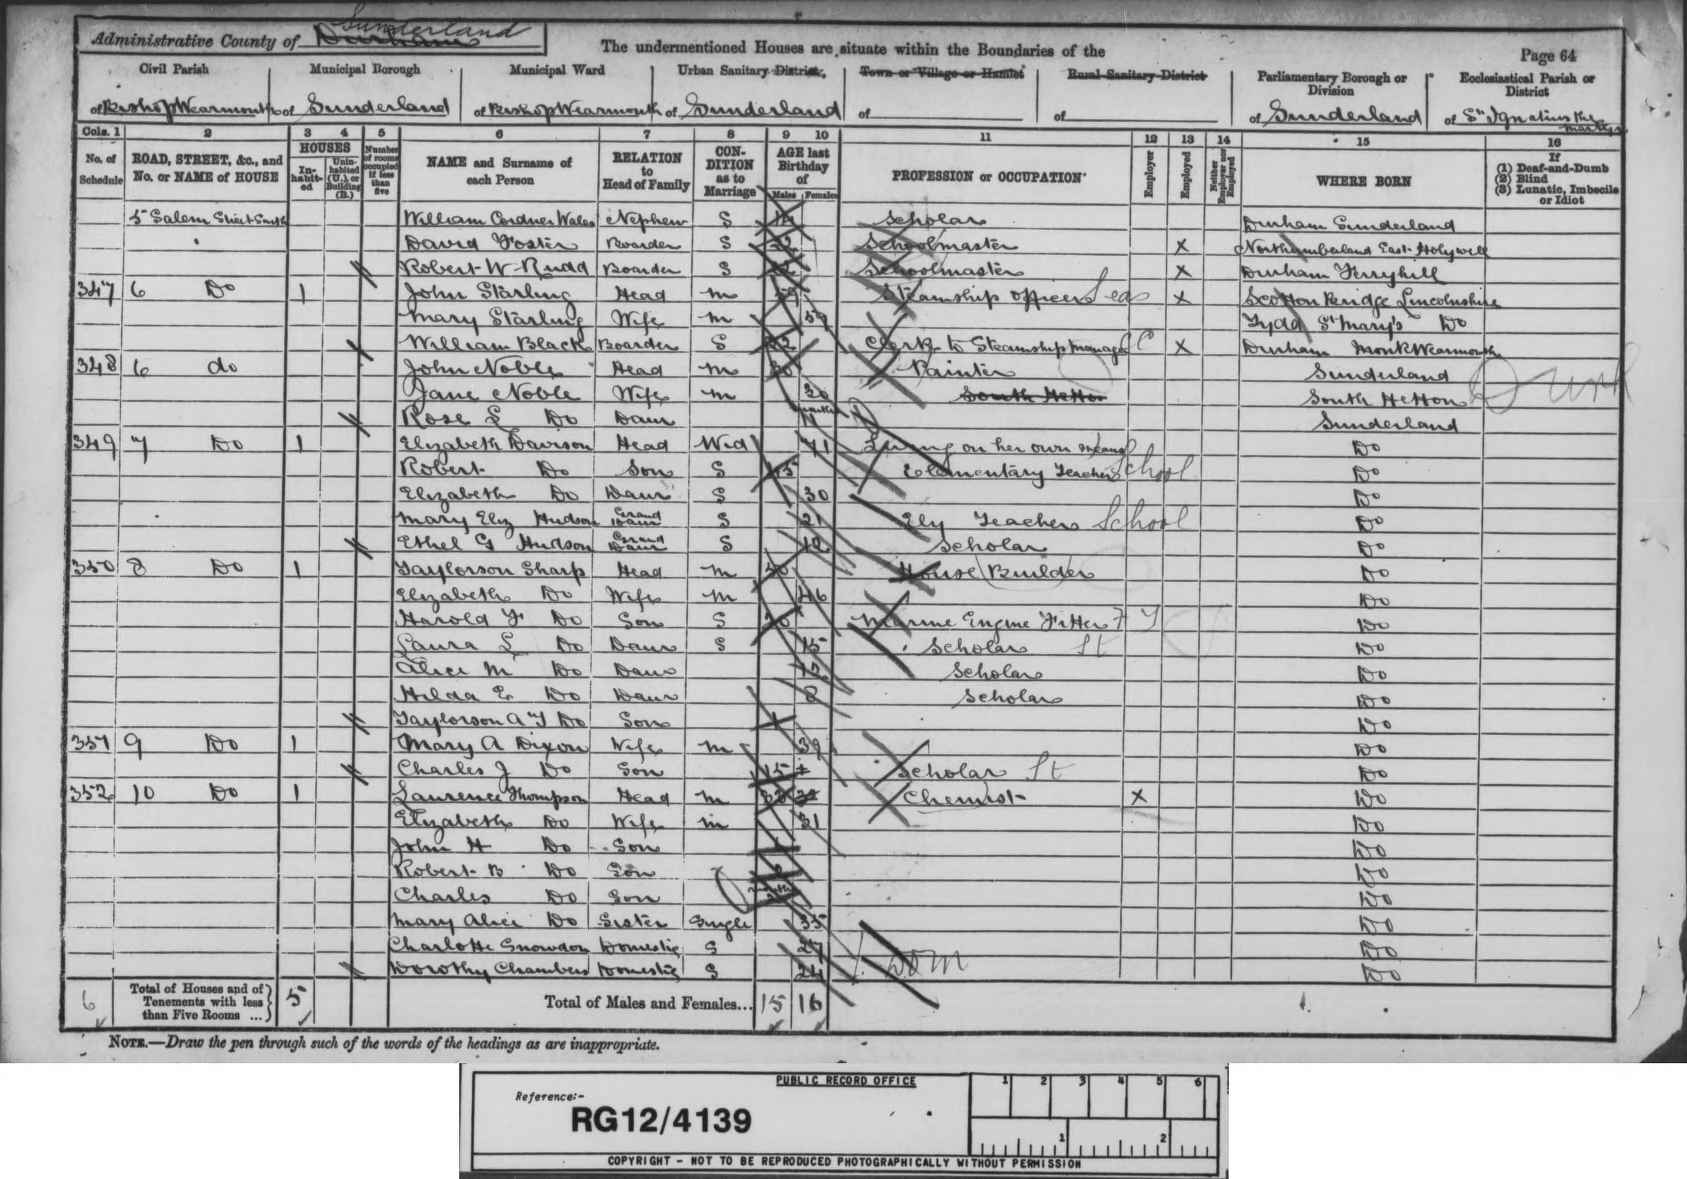 Administrative County of Durham Sunderland
The undermentioned Houses are situate within the Boundaries of the
Page 64
Civil Parish Municipal Borough Municipal Ward Urban Sanitary District Town or Village or Hamlet Rural Sanitary District Parliamentary Borough or Division Ecclesiastical Parish or District
of BishopWearmouth of Sunderland of BishopWearmouth of Sunderland of of of Sunderland of St Ignatius the Martyr
Cols. 1 2 3 4 5 6 7 8 9 10 11 12 13 14 15 16
No. of Schedule ROAD, STREET, &c., and No. or NAME of HOUSE HOUSES Inhabited Uninhabited (U.), or Building (B.) Number of rooms occupied if less than five NAME and Surname of each Person RELATION to Head of Family CONDITION as to Marriage AGE last Birthday of Males Females PROFESSION or OCCUPATION Employer Employed Neither Employer nor Employed WHERE BORN If (1) Deaf-and-Dumb (2) Blind (3) Lunatic, Imbecile or Idiot
5 Salem Street South William Cordner Wales Nephew S Scholar Durham Sunderland
David Foster Boarder S 22 Schoolmaster X Northumberland East Holywell
Robert W Rudd Boarder S Schoolmaster X Durham Ferryhill
347 6 Do 1 John Starling Head M 59 Steamship officer Sea X Scotton Bridge Lincolnshire
Mary Starling Wife M 59 Tydd St Mary's Do
William Black Boarder S 22 Clerk to Steamship Manager C X Durham MonkWearmouth
348 6 do John Noble Head M 30 Painter Sunderland
Jane Noble Wife M 30 South Hetton South Hetton Durh
Rose L Do Daur Sunderland
349 7 Do 1 Elizabeth Davison Head Wid 71 Living on her own means Do
Robert Do Son S 45 Elementary Teacher School Do
Elizabeth Do Daur S 30 Do
Mary Eliz Hudson Grand Daur S 21 Ely Teacher School Do
Ethel G Hudson Grand Daur S 12 Scholar Do
350 8 Do 1 Taylorson Sharp Head M House Builder Do
Elizabeth Do Wife M 46 Do
Harold F Do Son S 20 Marine Engine Fitter Do
Laura L Do Daur S 15 Scholar St Do
Alice M Do Daur 12 Scholar Do
Hilda E Do Daur 8 Scholar Do
Taylorson A F Do Son Do
351 9 Do 1 Mary A Dixon Wife M 39 Do
Charles J Do Son 15 Scholar St Do
352 10 Do 1 Laurence Thompson Head M Chemist X Do
Elizabeth Do Wife M 31 Do
John H Do Son Do
Robert B Do Son Do
Charles Do Son Do
Mary Alice Do Sister Single 35 Do
Charlotte Snowdon Domestic S 27 Do
Dorothy Chambers Domestic S 24 Dom Do
6 Total of Houses and of Tenements with less than Five Rooms ... 5 Total of Males and Females... 15 16
NOTE.—Draw the pen through such of the words of the headings as are inappropriate.
PUBLIC RECORD OFFICE 1 2 3 4 5 6
Reference:-
RG12/4139
1 2
COPYRIGHT - NOT TO BE REPRODUCED PHOTOGRAPHICALLY WITHOUT PERMISSION